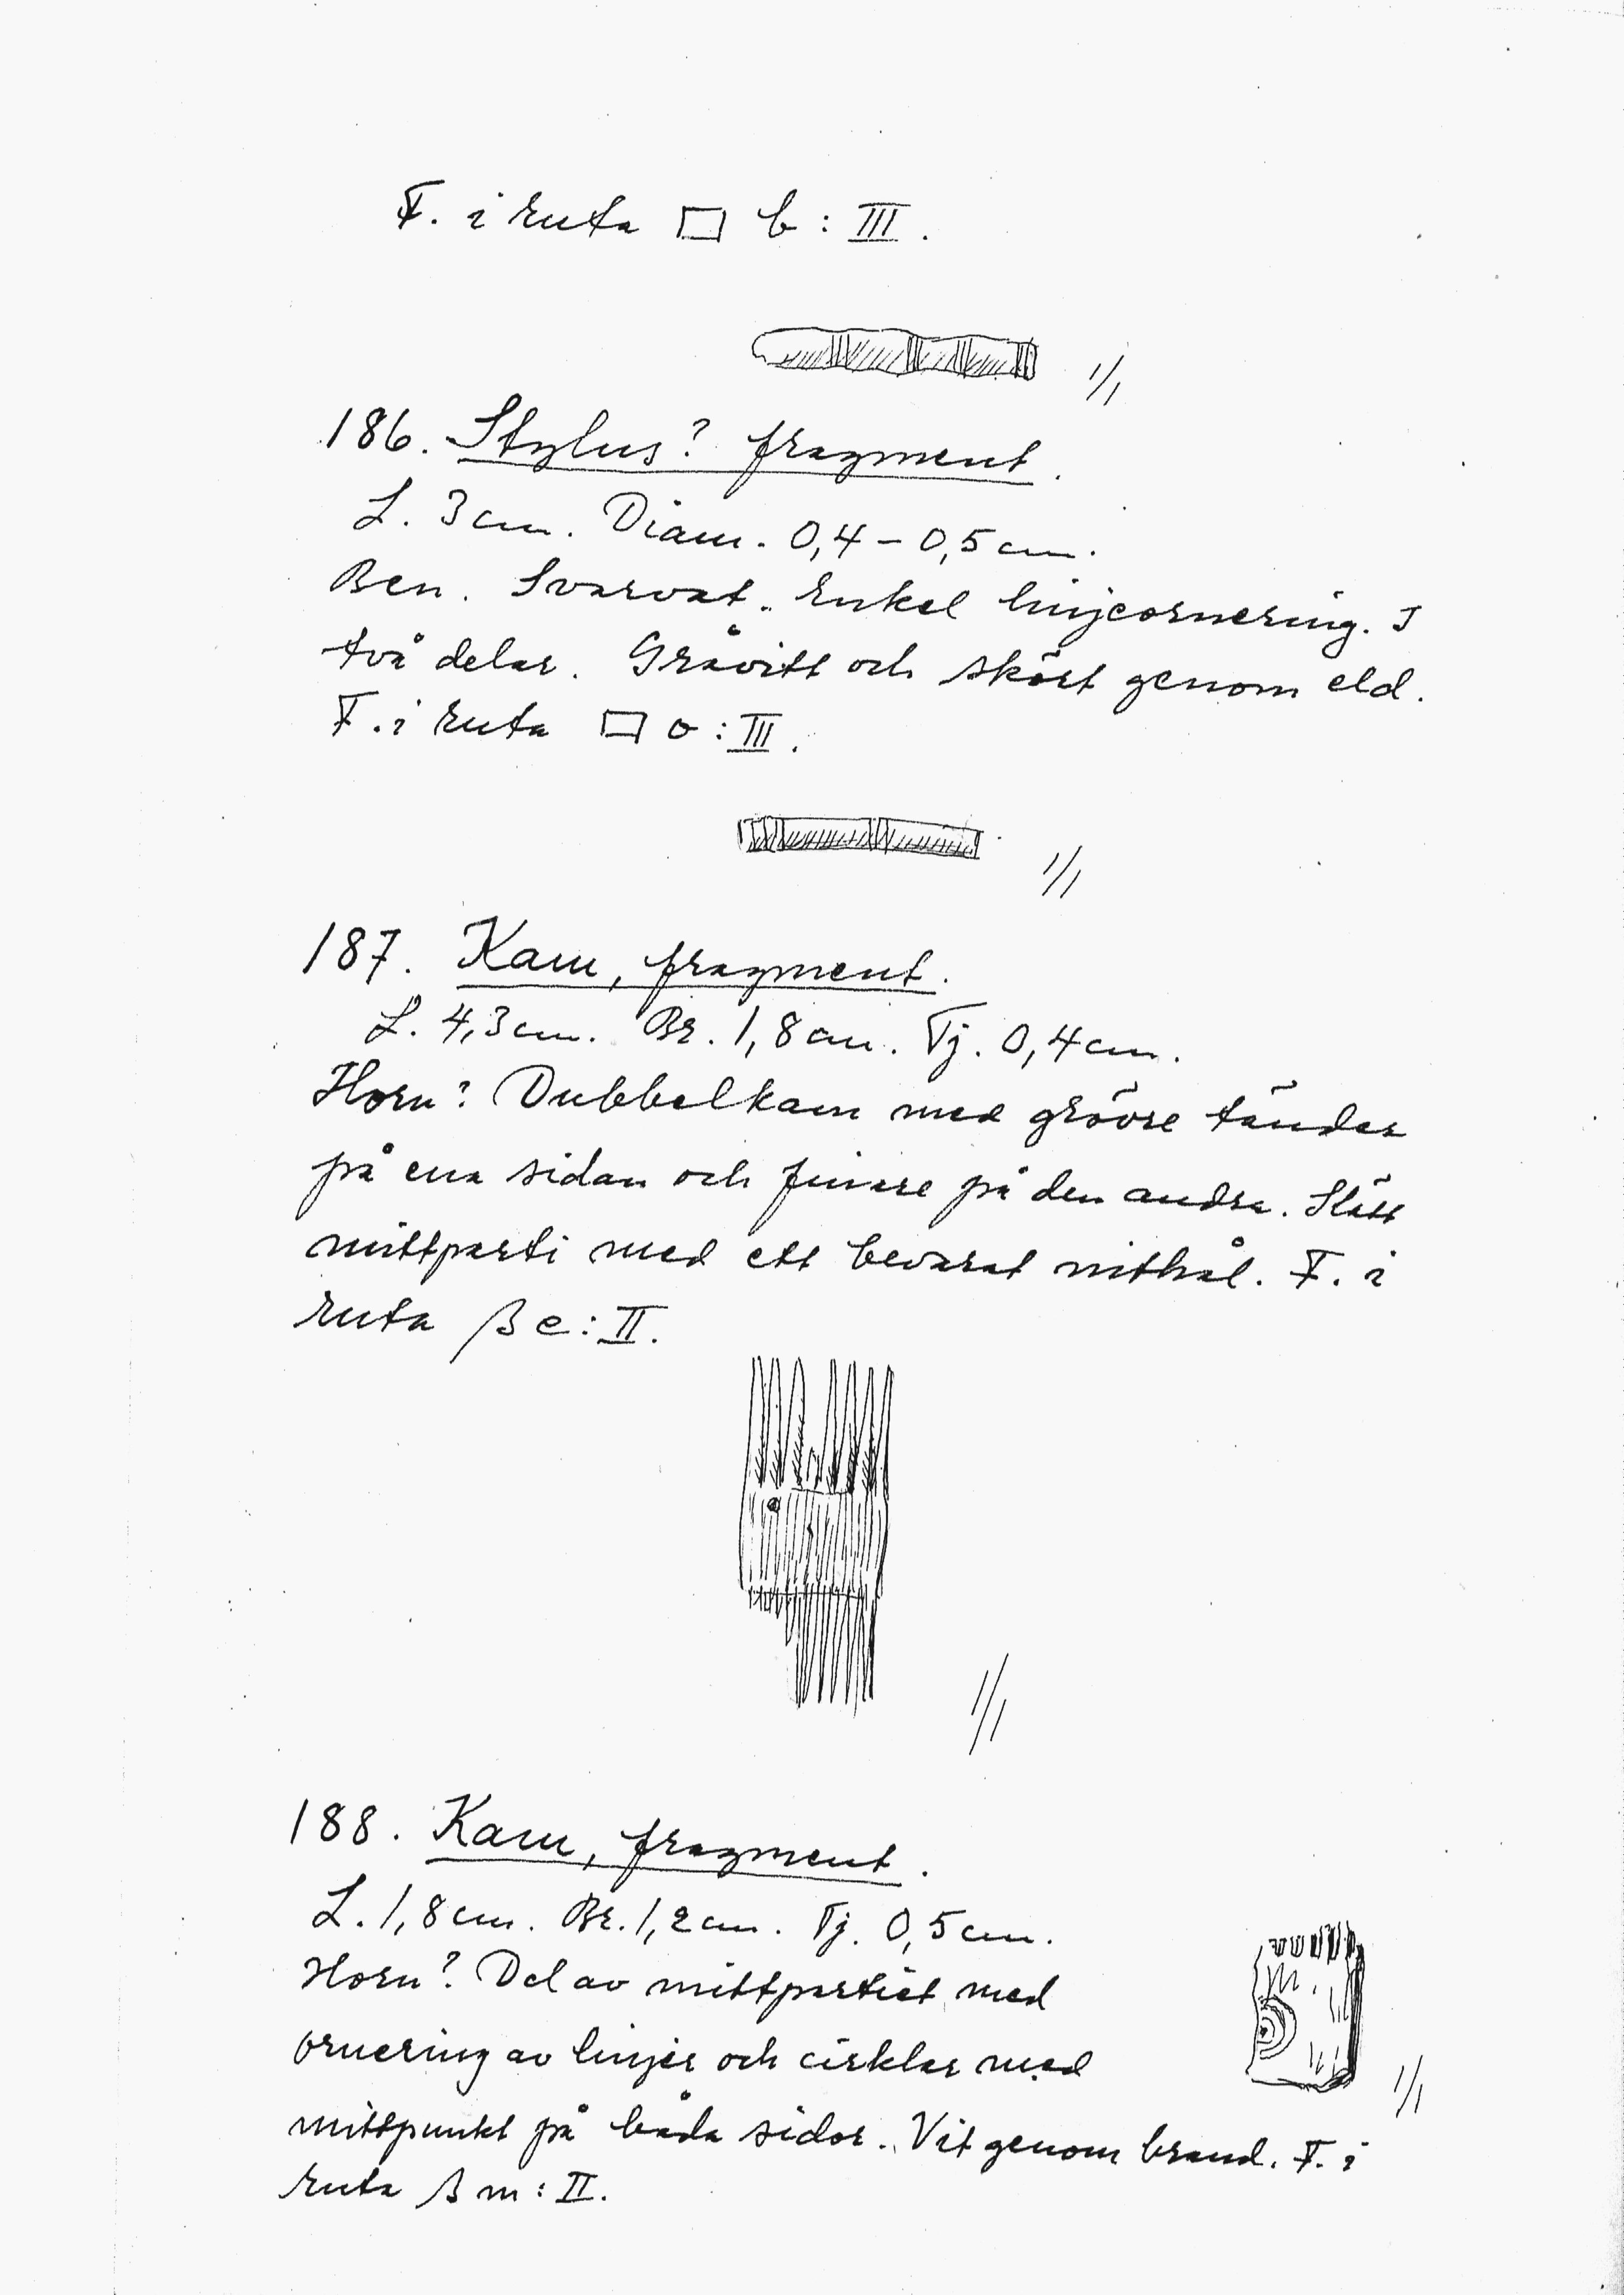 F. i ruta □ b : III.
1/1
186. Stylus? fragment.
L. 3 cm. Diam. 0,4 – 0,5 cm.
Ben. Svarvat. Enkel linjeornering. I
två delar. Gråvitt och skört genom eld.
F. i ruta □ o : III.
1/1
187. Kam, fragment.
L. 4,3 cm. Br. 1,8 cm. Tj. 0,4 cm.
Horn? Dubbelkam med grövre tänder
på ena sidan och finare på den andra. Slätt
mittparti med ett bevarat nithål. F. i
ruta β e : II.
1/1
188. Kam, fragment.
L. 1,8 cm. Br. 1,2 cm. Tj. 0,5 cm.
Horn? Del av mittpartiet med
ornering av linjer och cirklar med
mittpunkt på båda sidor. Vit genom brand. F. i
ruta β m : II.
1/1